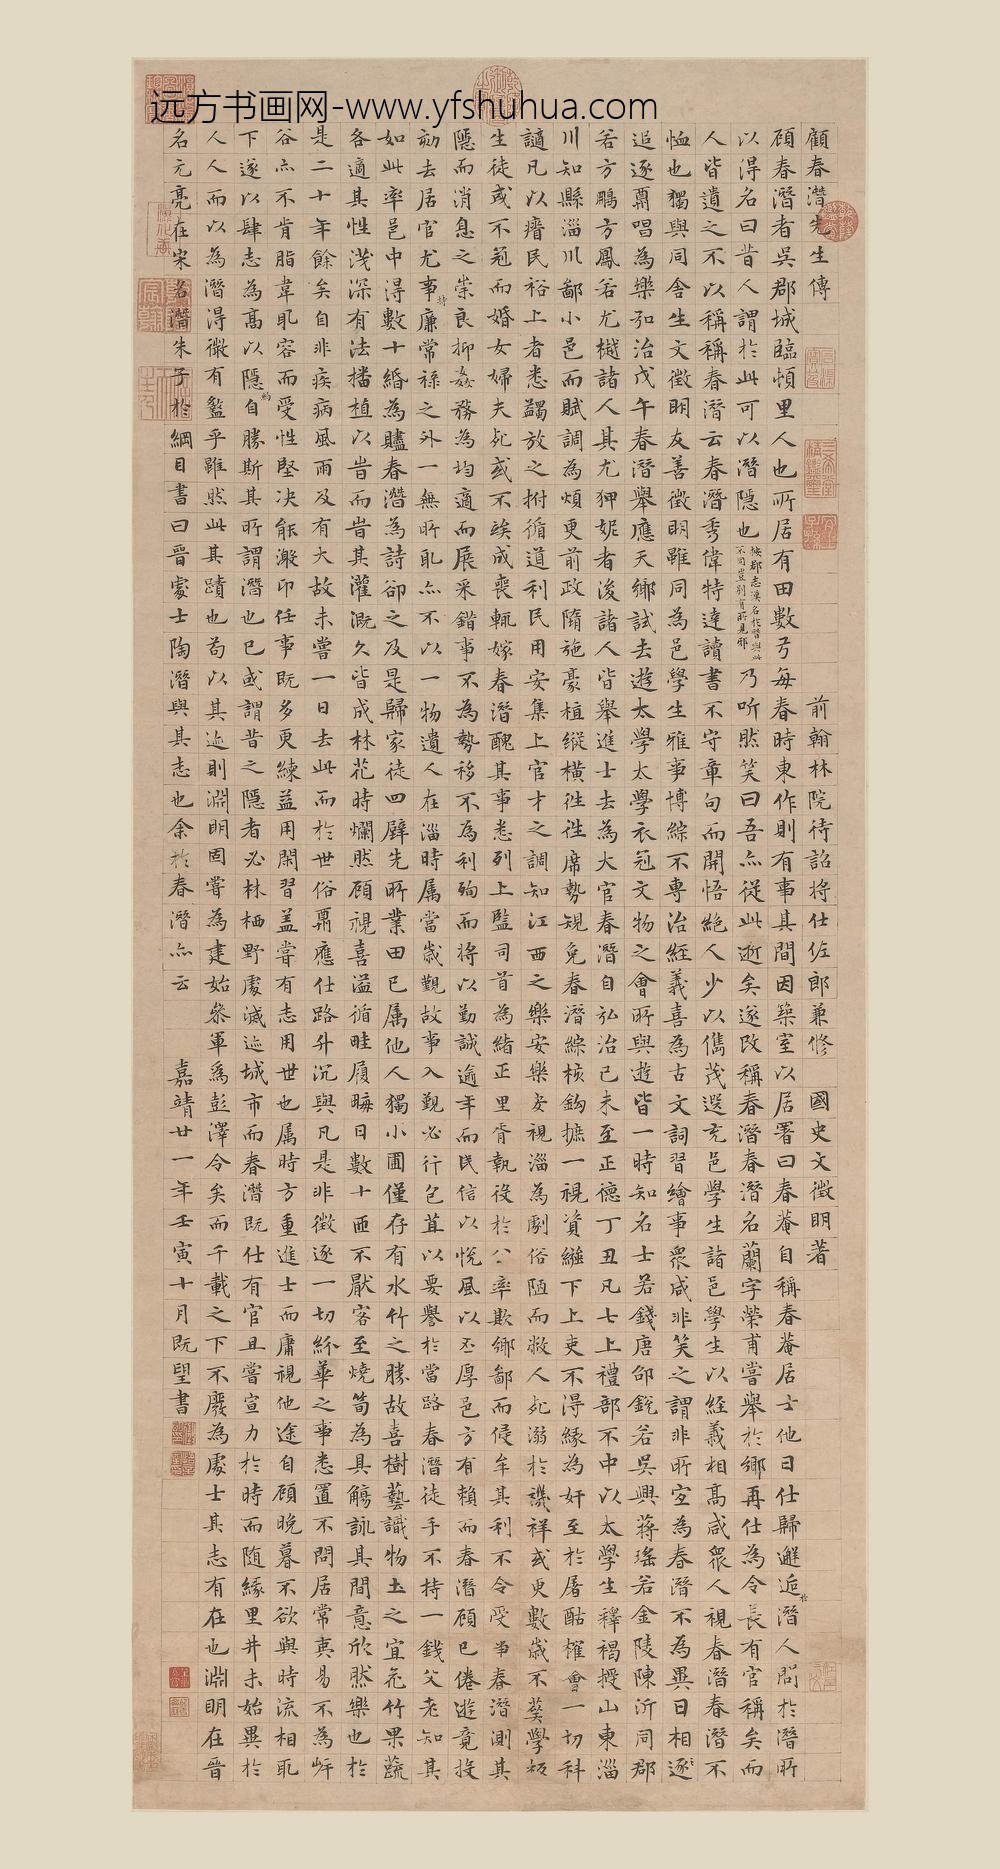 远方书画网-www.yfshuhua.com
顧春潛先生傳　前翰林院待詔將仕佐郎兼修　國史文徵明著
顧春潛者吳郡城臨頓里人也所居有田數弓每春時東作則有事其間因築室以居署曰春菴自稱春菴居士他日仕歸邂逅於潛人問於潛所
以得名曰昔人謂於此可以潛隱也按郡志漢名於朁與此不同豈別有所見耶乃听然笑曰吾亦從此逝矣遂改稱春潛春潛名蘭字榮甫嘗舉於鄉再仕為令長有官稱矣而
人皆遺之不以稱稱春潛云春潛秀偉特達讀書不守章句而開悟絕人少以儁茂選充邑學生諸邑學生以經義相高咸眾人視春潛春潛不
恤也獨與同舍生文徵明友善徵明雖同為邑學生雅事博綜不專治經義喜為古文詞習繪事眾咸非笑之謂非所宜為春潛不為異日相逐
追逐鬻唱為樂弘治戊午春潛舉應天鄉試去遊太學太學衣冠文物之會所與遊皆一時知名士若錢唐邵銳若吳興蔣瑤若金陵陳沂同郡
若方鵬方鳳若尤樾諸人其尤狎妮者後諸人皆舉進士去為大官春潛自弘治己未至正德丁丑凡七上禮部不中以太學生釋褐授山東淄
川知縣淄川鄙小邑而賦調為煩更前政隋施豪植縱橫往往席勢規免春潛綜核鈎摭一視資繇下上吏不得緣為奸至於屠酤榷會一切科
讁凡以瘠民裕上者悉蠲放之拊循道利民用安集上官才之調知江西之樂安樂安視淄為劇俗陋而救人死溺於禨祥或更數歲不葬學校
生徒或不冠而婚女婦夫死或不竢成喪輒嫁春潛醜其事悉列上監司首為緒正里胥執役於公率欺鄉鄙而侵牟其利不令受爭春潛測其
隱而消息之崇良抑姦務為均適而展采錯事不為勢移不為利殉而將以勤誠逾年而民信以悅風以丕厚邑方有賴而春潛顧已倦遊竟投
劾去居官尤事持廉常祿之外一無所取亦不以一物遺人在淄時屬當歲覲故事入覲必行包苴以要譽於當路春潛徒手不持一錢父老知其
如此率邑中得數十緡為贐春潛為詩卻之及是歸家徒四壁先所業田已屬他人獨小圃僅存有水竹之勝故喜樹藝識物土之宜花竹果蔬
各適其性淺深有法播植以旹而旹其灌溉久皆成林花時爛然顧視喜溢循畦履畮日數十匝不厭客至燒筍為具觴詠其間意欣然樂也於
是二十年餘矣自非疾病風雨及有大故未嘗一日去此而於世俗鬻應仕路升沉與凡是非徵逐一切紛華之事悉置不問居常夷易不為岸
谷亦不肯脂韋取容而受性堅決能激卬任事既多更練益用閑習蓋嘗有志用世也屬時方重進士而庸視他途自顧晚暮不欲與時流相取
下遂以肆志為高以隱約自勝斯其所謂潛也已或謂昔之隱者必林栖野處滅迹城市而春潛既仕有官且嘗宣力於時而随緣里井未始異於
人人而以為潛得微有盭乎雖然此其蹟也苟以其迹則淵明固嘗為建始參軍為彭澤令矣而千載之下不廢為處士其志有在也淵明在晉
名元亮在宋名潛朱子於綱目書曰晉處士陶潛與其志也余於春潛亦云　嘉靖廿一年壬寅十月既望書